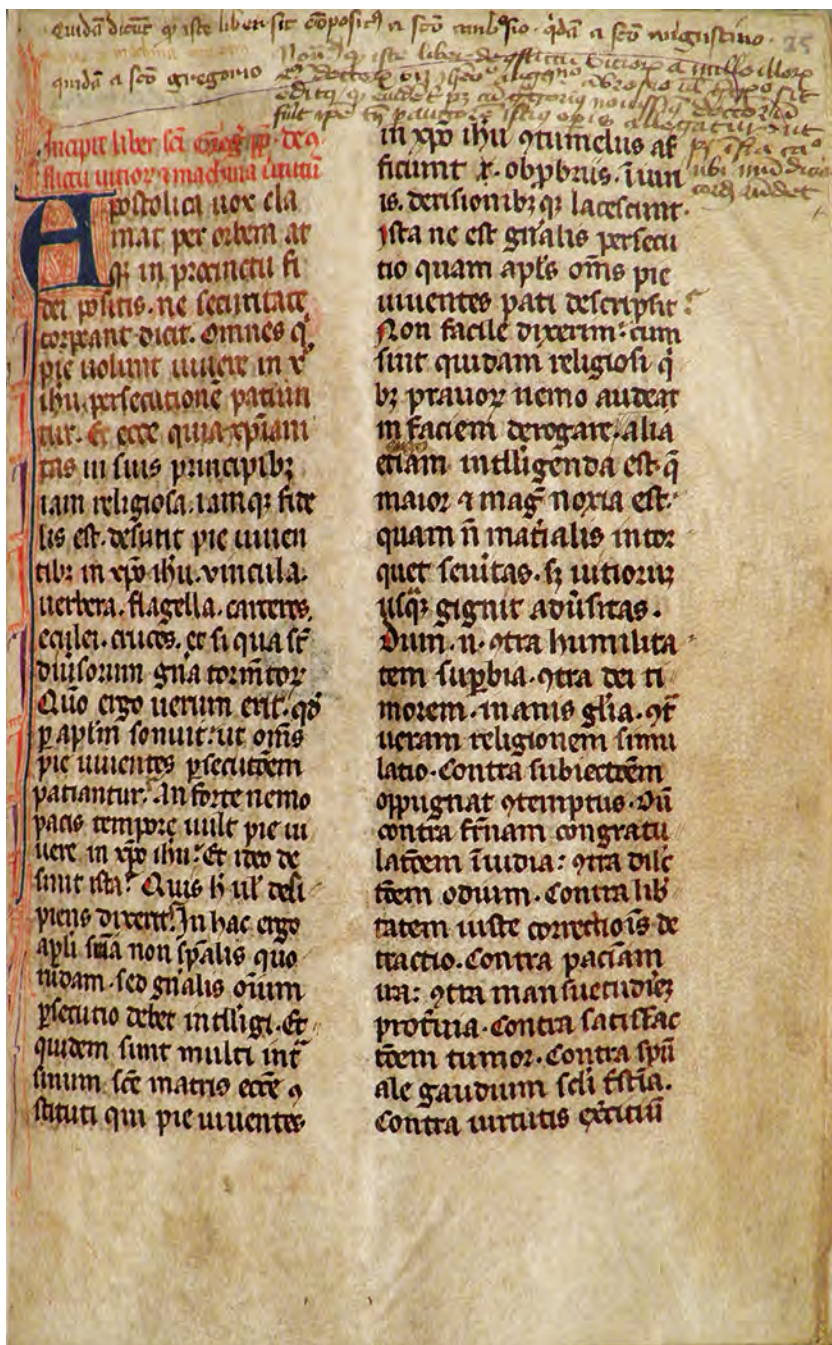 Quidā dicūt qꝫ iste liber sit cōpositꝰ a scō ambꝛosio · qdā a scō augustino · 25
quidā a scō gregorio
Incipit liber sci de ꝯ
flictu uitioꝝ ⁊ machina uirtutū
Apostolica uox cla
mat per orbem at
qꝫ in procinctu fi
dei positis. ne securitate
torpeant dicit. Omnes q
pie uolunt uiuere in xp̄o
ihu. persecutionē patiun
tur. Et ecce quia xp̄iani
tas in suis principibꝫ
iam religiosa. iamqꝫ fide
lis est. desunt pie uiuen
tibꝫ in xp̄o ihu. vincula.
uerbera. flagella. carceres.
eculei. cruces. et si qua st̄
diuisorum gn̄a tormtoꝝ
Quō ergo uerum erit. qd̓
p̲ aplm̄ sonuit: ut om̄s
pie uiuentes p̲secutōem
patiantur. An forte nemo
pacis tempore uult pie ui
uere in xp̄o ihu? Et ideo de
sunt ista? Quis h̓ ul̓ desi
piens dixerit? In hac ergo
apl̓i sn̄ia non spālis quo
rūdam. sed gn̄alis oīum
p̲secutio debet intelligi. Et
quidem sunt multi int̄
sinum scē matris ecc̄e ꝯ
stituti qui pie uiuentes
in xp̄o ihu ꝯtumeliis af
ficiunt̄. obp̲briis. īiuri
is. derisionibꝫqꝫ lacescunt̄.
ista ne est gn̄alis persecu
tio quam apl̓s om̄s pie
uiuentes pati descripsit?
Non facile dixerim: cum
sint quidam religiosi q̓
bꝫ prauoꝝ nemo audeat
in faciem derogare. alia
etiam intelligenda est. q̄
maior ⁊ mag̓ noxia est.
quam n̄ mat̓ialis intor
quet seuitas. sꝫ uitiorum
usqꝫ gignit adūsitas.
Dum. n. ꝯtra humilita
tem sup̲bia. ꝯtra dei ti
morem. inanis gl̓ia. ꝯt̓
ueram religionem simu
latio. Contra subiectōem
oppugnat ꝯtemptus. Dū
contra fr̄nam congratu
latōem īuidia: ꝯtra dil̓c
tōem odium. Contra lib̓
tatem iuste correctiōis de
tractio. Contra pac̄iam
ira: ꝯtra mansuetudīeꝫ
prot̓uia. Contra satisfac
tōem tumor. Contra spū
ale gaudium sc̄li t̓stīa.
Contra uirtutis ex̄citiū